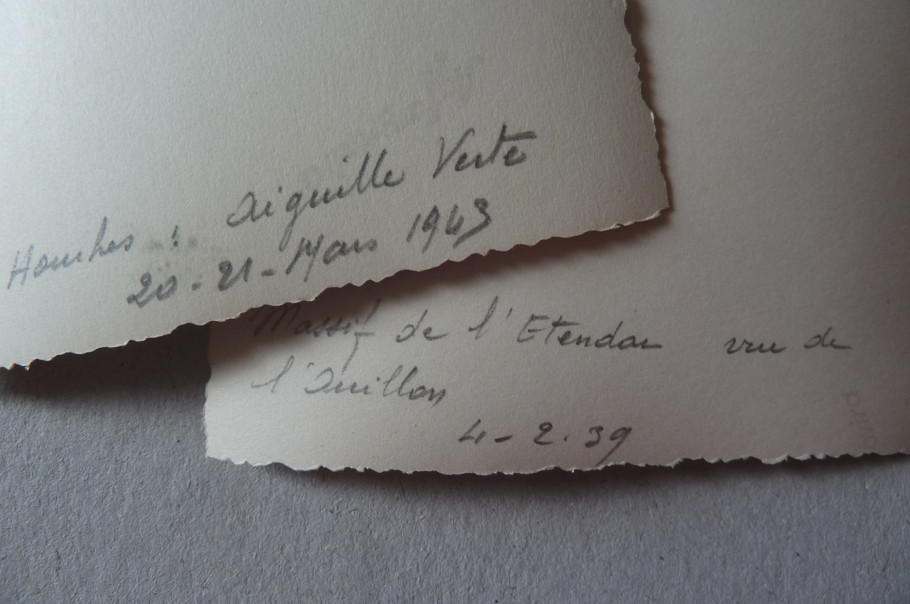 Houches : Aiguille Verte
20-21-Mars 1943
Massif de l'Etendar vue de
l'Ouillon
4-2.39